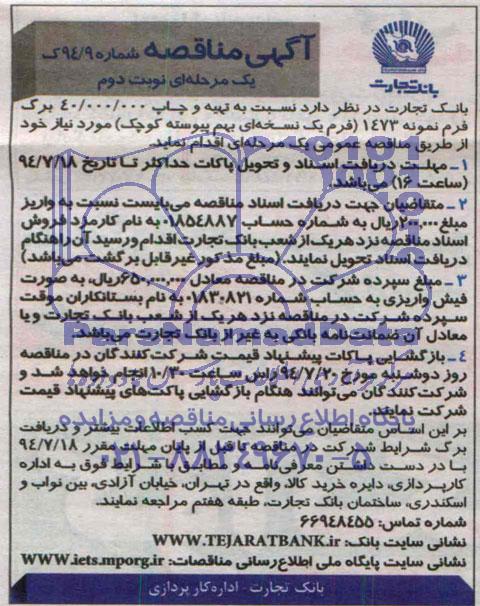 آگهی مناقصه شماره ۹۴/۹ک
یک مرحله‌ای نوبت دوم
بانک تجارت
بانک تجارت در نظر دارد نسبت به تهیه و چاپ ۴۰/۰۰۰/۰۰۰ برگ
فرم نمونه ۱۴۷۳ (فرم یک نسخه‌ای بهم پیوسته کوچک) مورد نیاز خود
از طریق مناقصه عمومی یک مرحله‌ای اقدام نماید.
۱ـ مهلت دریافت اسناد و تحویل پاکات حداکثر تا تاریخ ۹۴/۷/۱۸
(ساعت ۱۶) می‌باشد.
۲ـ متقاضیان جهت دریافت اسناد مناقصه می‌بایست نسبت به واریز
مبلغ ۲۰۰,۰۰۰ریال به شماره حساب ۰۱۸۵۴۸۸۷ به نام کارمزد فروش
اسناد مناقصه نزد هریک از شعب بانک تجارت اقدام و رسید آن را هنگام
دریافت اسناد تحویل نمایند. (مبلغ مذکور غیر قابل برگشت می‌باشد)
۳ـ مبلغ سپرده شرکت در مناقصه معادل ۶۵۰,۰۰۰,۰۰۰ریال، به صورت
فیش واریزی به حساب شماره ۰۱۸۳۰۸۲۱ به نام بستانکاران موقت
سپرده شرکت در مناقصه نزد هر یک از شعب بانک تجارت و یا
معادل آن ضمانت‌نامه بانکی به غیر از بانک تجارت می‌باشد.
۴ـ بازگشایی پاکات پیشنهاد قیمت شرکت کنندگان در مناقصه
روز دوشنبه مورخ ۹۴/۷/۲۰ راس ساعت ۱۰/۳۰ انجام خواهد شد و
شرکت کنندگان می‌توانند هنگام بازگشایی پاکت‌های پیشنهاد قیمت
شرکت نمایند.
بر این اساس متقاضیان می‌توانند جهت کسب اطلاعات بیشتر و دریافت
برگ شرایط شرکت در مناقصه تا قبل از پایان مهلت مقرر ۹۴/۷/۱۸
با در دست داشتن معرفی‌نامه و مطابق با شرایط فوق به اداره
کارپردازی، دایره خرید کالا، واقع در تهران، خیابان آزادی، بین نواب و
اسکندری، ساختمان بانک تجارت، طبقه هفتم مراجعه نمایند.
شماره تماس: ۶۶۹۴۸۴۵۵
نشانی سایت بانک: WWW.TEJARATBANK.ir
نشانی سایت پایگاه ملی اطلاع‌رسانی مناقصات: WWW.iets.mporg.ir
بانک تجارت - اداره کار پردازی
ParsNamadData
پایگاه اطلاع رسانی مناقصه و مزایده
۰۲۱-۸۸۳۴۹۶۷۰-۵